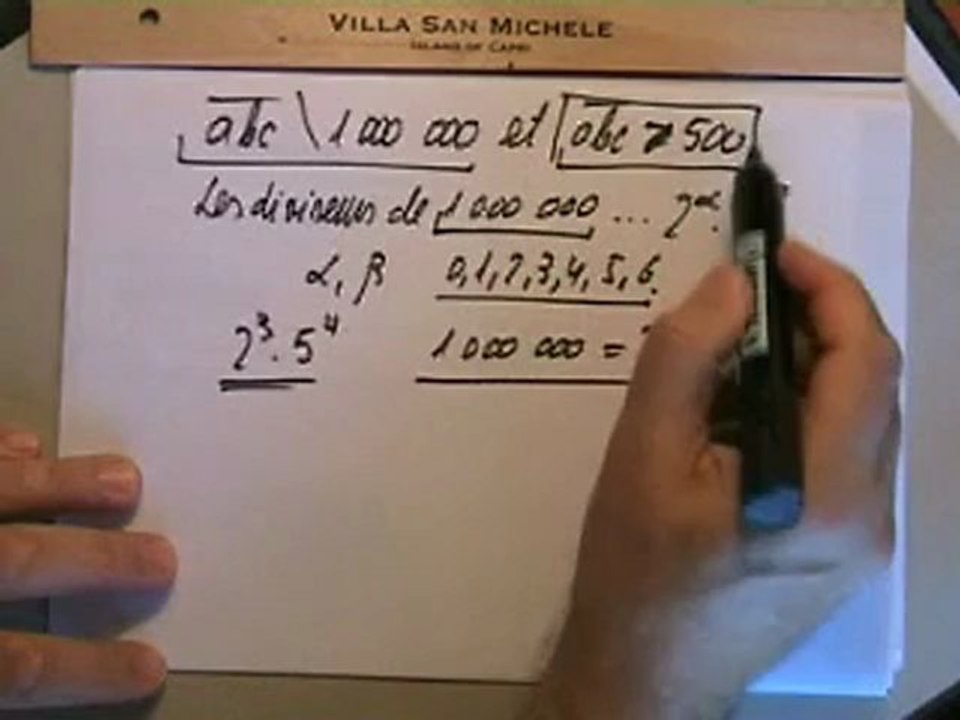 VILLA SAN MICHELE
ISLAND OF CAPRI
abc \ 1 000 000 et abc > 500
Les diviseurs de 1 000 000 ... 2^α .
α, β 0, 1, 2, 3, 4, 5, 6.
2³ . 5⁴ 1 000 000 =